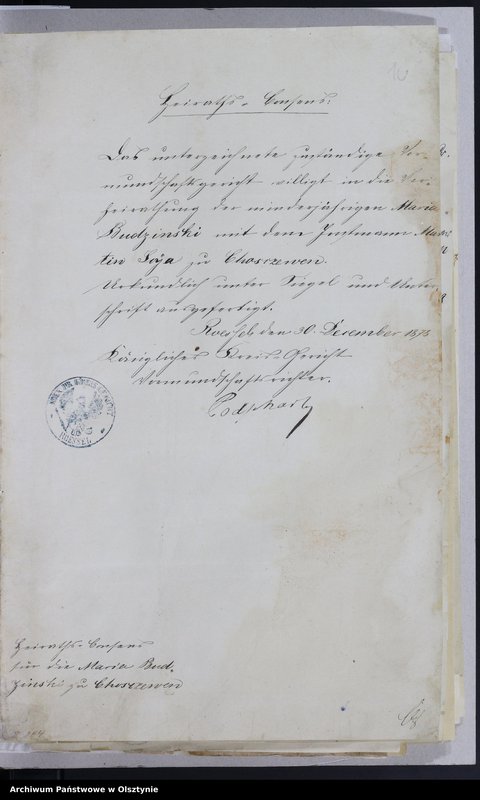 Heiraths-Consens.
Das unterzeichnete zuständige Vor-
mundschaftsgericht willigt in die Ver-
heirathung der minderjährigen Maria
Budzinski mit dem Instmann Mar
tin Soya zu Choszewen.
Urkundlich unter Siegel und Unter-
schrift ausgefertigt.
Roessel den 30. December 1875
Königliches Kreis-Gericht
Vormundschaftsrichter.
ROESSEL
Heiraths-Consens
für die Maria Bud-
zinski zu Choszewen
Archiwum Państwowe w Olsztynie